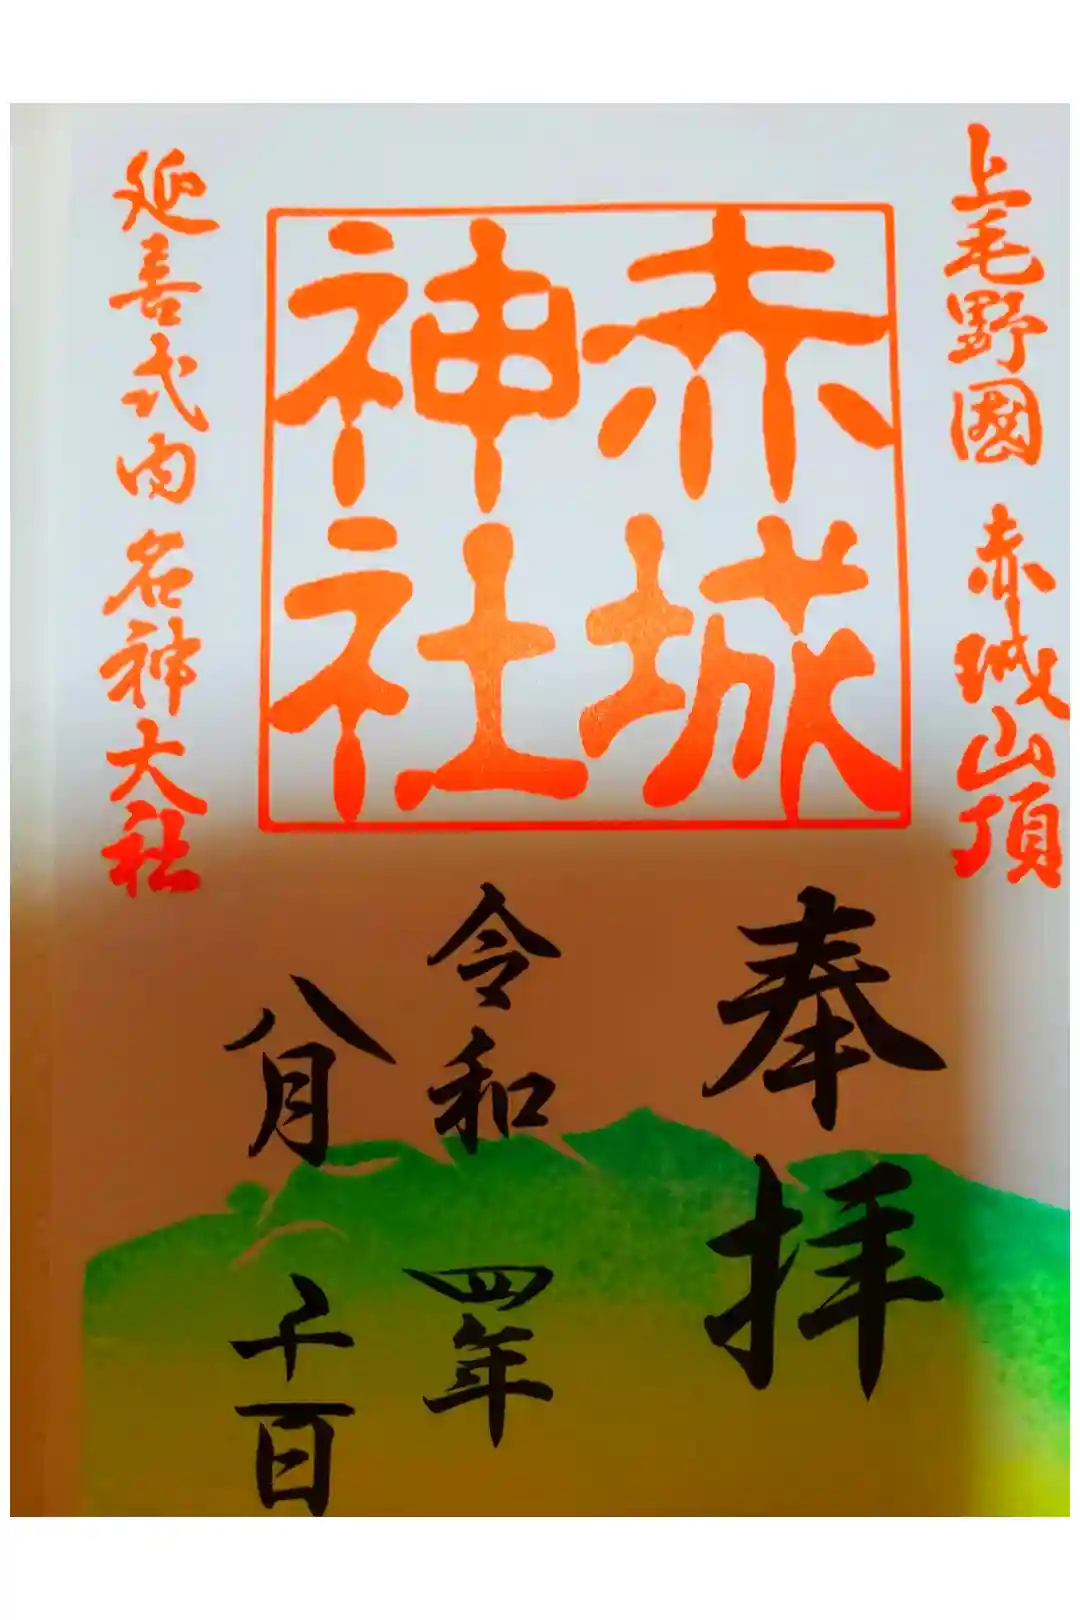 上毛野國 赤城山頂
赤城
神社
延喜式内 名神大社
奉拝
令和四年
八月十一日